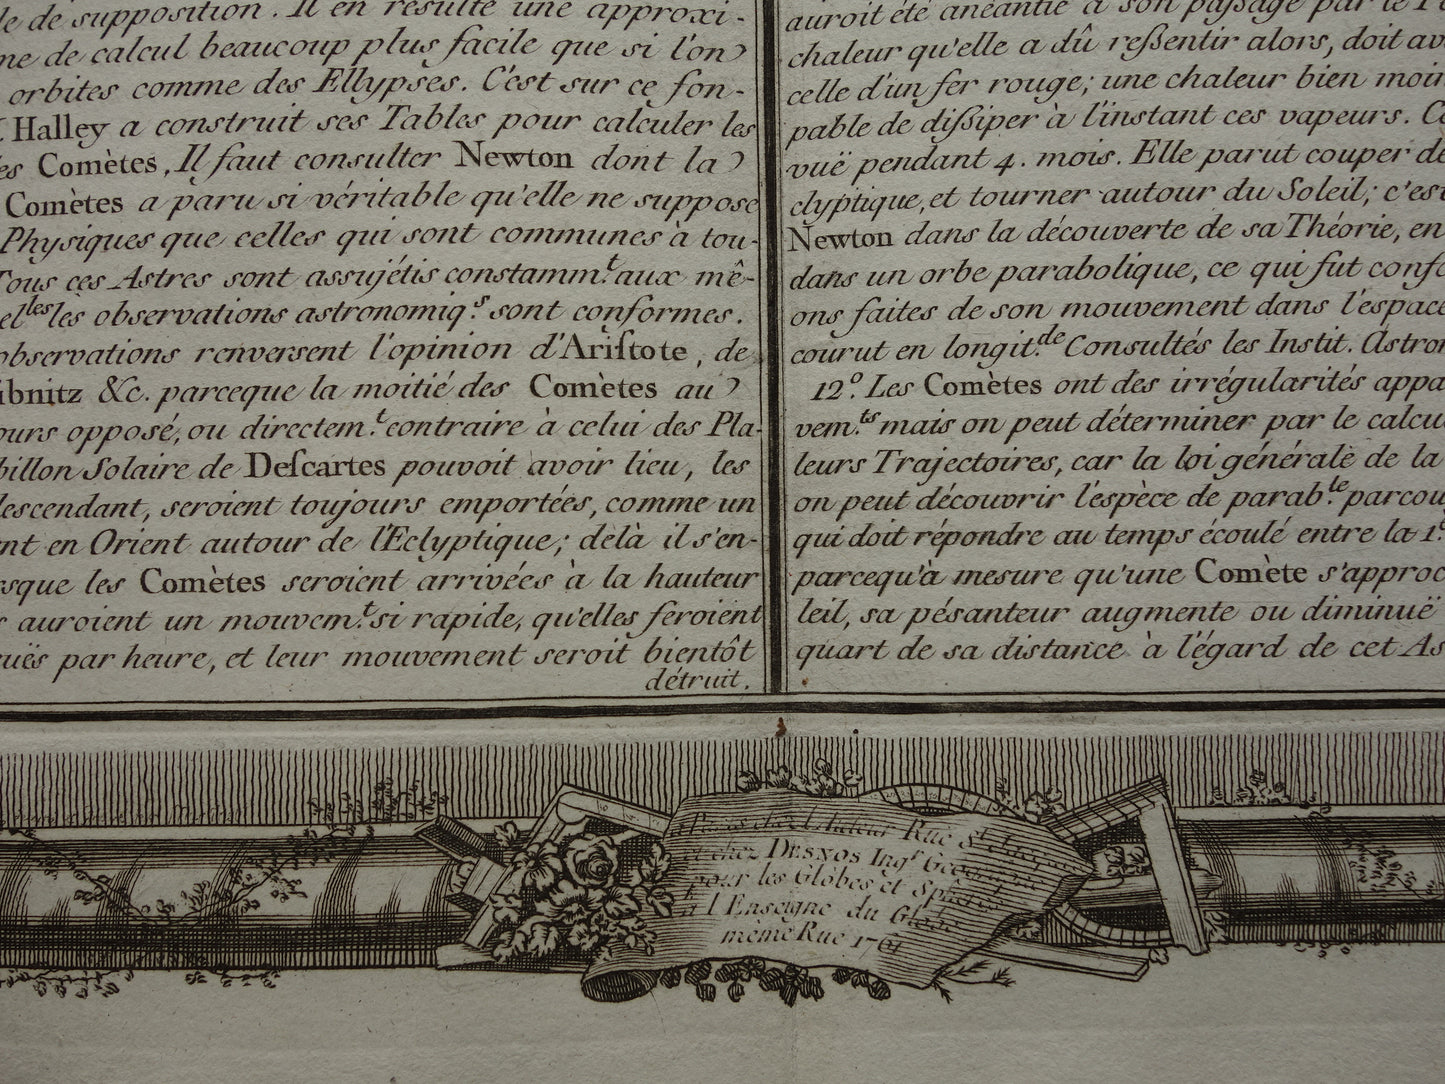 le de supposition. Il en resulte une approxi-
me de calcul beaucoup plus facile que si l'on
orbites comme des Ellypses. C'est sur ce fon-
Halley a construit ses Tables pour calculer les
es Comètes, Il faut consulter Newton dont la
Comètes a paru si véritable qu'elle ne suppose
Physiques que celles qui sont communes à tou-
Tous ces Astres sont assujétis constamm.t aux mê-
el les lès observations astronomiq.s sont conformes.
observations renversent l'opinion d'Ariſtote, de
ibnitz &c. parceque la moitié des Comètes au
ours opposé, ou directem.t contraire à celui des Pla-
billon Solaire de Deſcartes pouvoit avoir lieu, les
descendant, seroient toujours emportées, comme un
nt en Orient autour de l'Eclyptique; delà il s'en-
rsque les Comètes seroient arrivées à la hauteur
s auroient un mouvem.t si rapide, qu'elles feroient
uës par heure, et leur mouvement seroit bientôt
détruit.
auroit été anéantie à son passage par le
chaleur qu'elle a dû reßentir alors, doit av
celle d'un fer rouge; une chaleur bien moin
pable de dißiper à l'instant ces vapeurs. Ce
vuë pendant 4. mois. Elle parut couper de
clyptique, et tourner autour du Soleil; c'est
Newton dans la découverte de sa Théorie, en
dans un orbe parabolique, ce qui fut confo
ons faites de son mouvement dans l'espace
courut en longit.de Consultés les Instit. Astron
12.º Les Comètes ont des irrégularités appa
vem.ts mais on peut déterminer par le calcu
leurs Trajectoires, car la loi générale de la
on peut découvrir l'espèce de parab.le parcou
qui doit répondre au temps écoulé entre la 1.
parcequ'à mesure qu'une Comète s'approc
leil, sa pésanteur augmente ou diminuë
quart de sa distance à l'égard de cet As
A Paris chez l'Auteur Rue S.t
et chez DESNOS Ing.r
pour les Globes et
à l'Enseigne du Globe
même Rue 1761